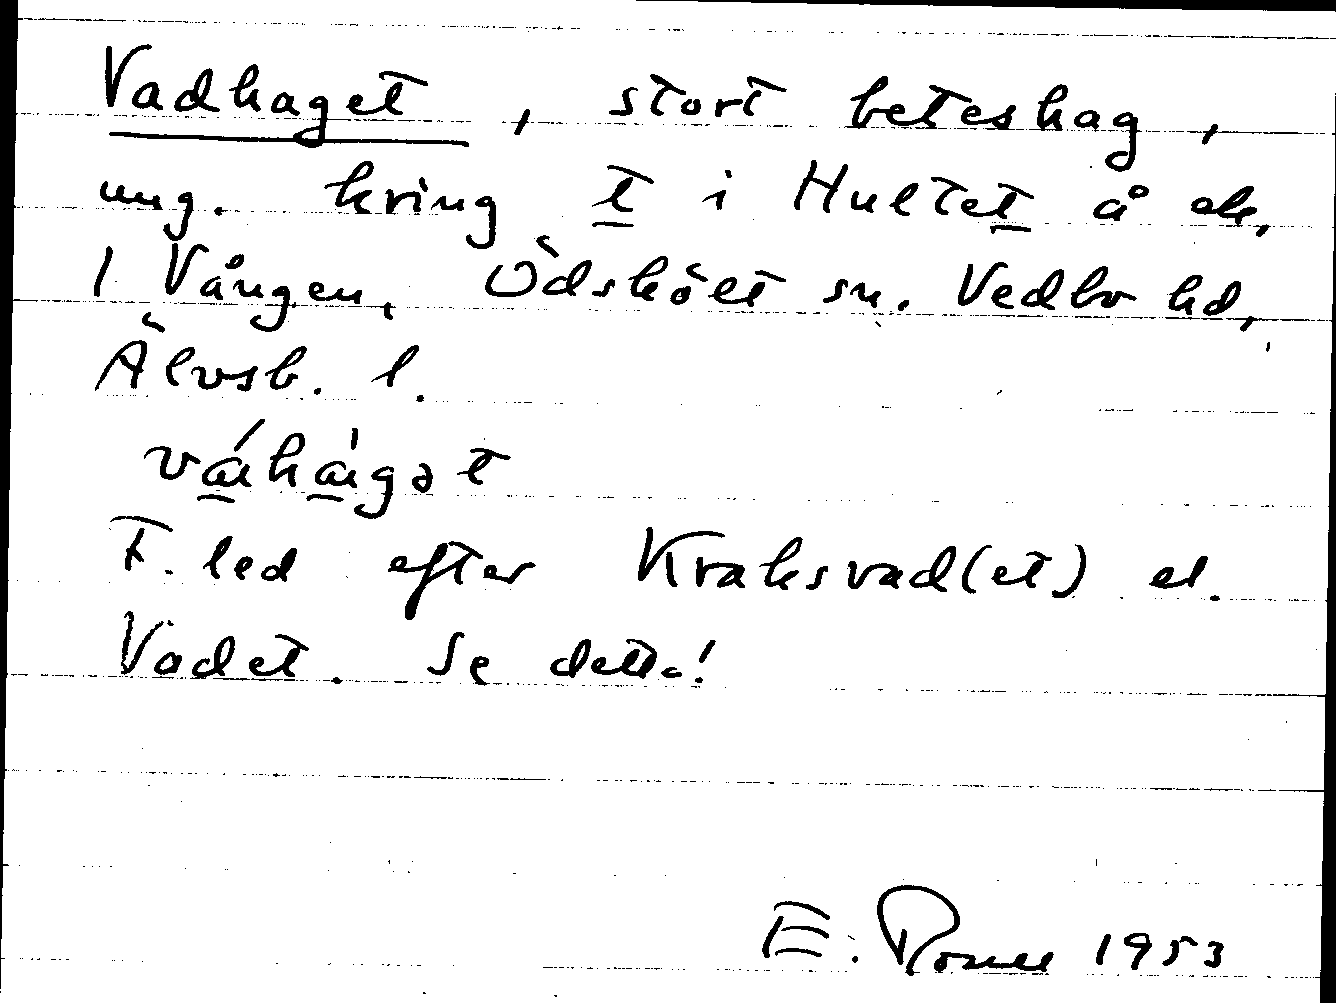 Vadhaget, stort beteshag,
ung. kring t i Hultet å ek.
1 Vången, Ödskölt sn. Vedbo hd,
Älvsb. l.
vháǥət
F. led efter Kraksvad(et) el.
Vadet. Se detta!
E. 1953